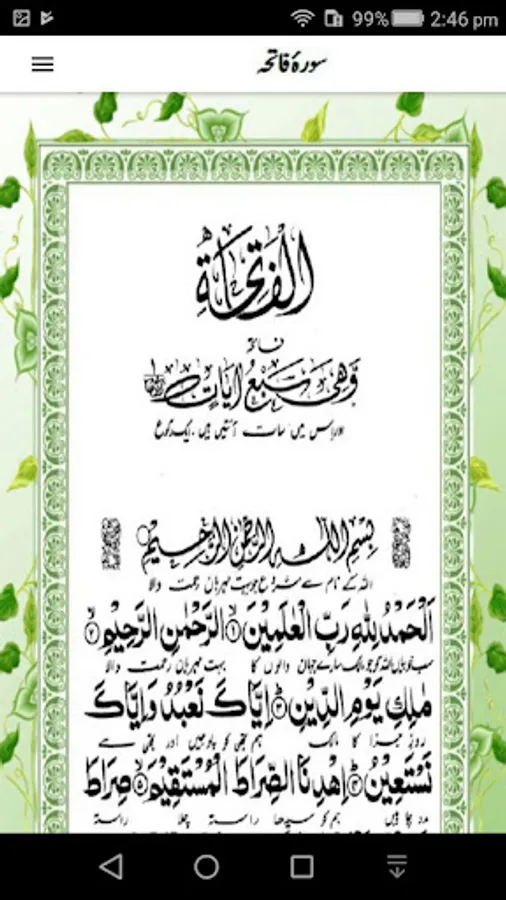 99% 2:46 pm
سورۂ فاتحہ
الْفَاتِحَةُ
فاتحہ
وَّهِیَ سَبْعُ اٰیَاتٍ
اور اس میں سات آئتیں ہیں۔ ایک رکوع
بِسْمِ اللّٰهِ الرَّحْمٰنِ الرَّحِیْمِ
اللہ کے نام سے شروع جو بہت مہربان رحمت والا
اَلْحَمْدُ لِلّٰهِ رَبِّ الْعٰلَمِیْنَ ۱ الرَّحْمٰنِ الرَّحِیْمِ ۲
سب خوبیاں اللہ کو جو مالک سارے جہان والوں کا بہت مہربان رحمت والا
مٰلِكِ یَوْمِ الدِّیْنِ ۳ اِیَّاكَ نَعْبُدُ وَ اِیَّاكَ
روز جزا کا مالک ہم تجھی کو پوجیں اور تجھی سے
نَسْتَعِیْنُ ۴ اِهْدِنَا الصِّرَاطَ الْمُسْتَقِیْمَ ۵ صِرَاطَ
مدد چاہیں ہم کو سیدھا راستہ چلا راستہ